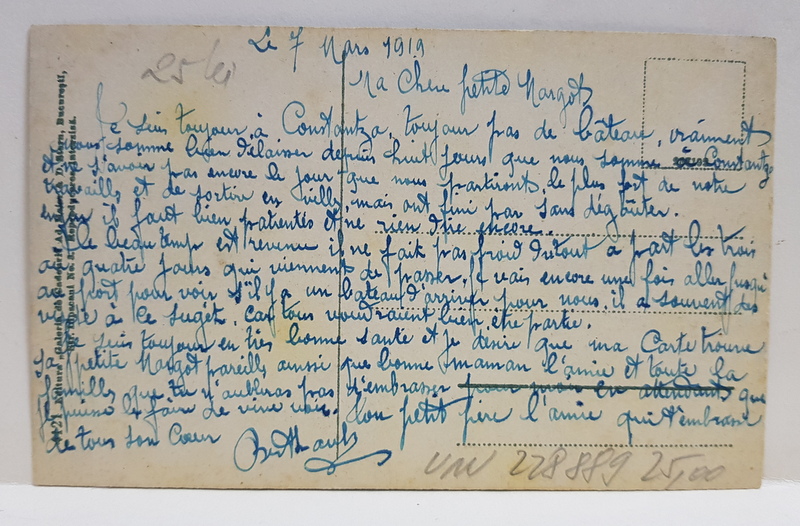 Le 7 Mars 1919
25 lei
Ma Chere petite Margot
Je suis toujour à Constantza, toujour pas de bâteau, vraiment
nous somme bien délaisser depuis huit jours que nous somme à Constantza
et s'avoir pas encore le jour que nous partiront, le plus fort de notre
travaille et de sortire en ville, mais ont fini par sans dégoûter.
enfin il faut bien patientés et ne rien dire encore.
le beau temp est revenue il ne fait pas froid du tout a part les trois
ou quatre jours qui viennent de passer. Je vais encore une fois aller jusqu'
au port pour voir s'il y a un bateau d'arriver pour nous, il a souvent des
à ce suget, car tous voudraient bien etre partie.
Je suis toujour en très bonne santé et je desire que ma Carte trouve
petite Margot pareille aussi que bonne maman l'amie et toute la
famille que tu n'aubliras pas d'embrasser pour moi en attendant que
je puisse le faire de vive voix. Ton petit père l'amie qui t'embrasse
de tous son Coeur Berthault
VNN 228889 25,00